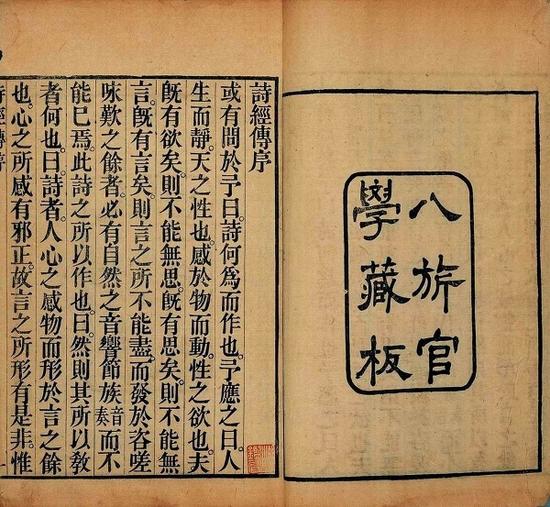 八旂官
學藏板
詩經傳序
或有問於予曰。詩何爲而作也。予應之曰。人
生而靜。天之性也。感於物而動。性之欲也。夫
旣有欲矣。則不能無思。旣有思矣。則不能無
言。旣有言矣。則言之所不能盡。而發於咨嗟
咏歎之餘者。必有自然之音響節族音奏而不
能已焉。此詩之所以作也。曰。然則其所以敎
者何也。曰。詩者。人心之感物而形於言之餘
也。心之所感有邪正。故言之所形有是非。惟
詩經傳序